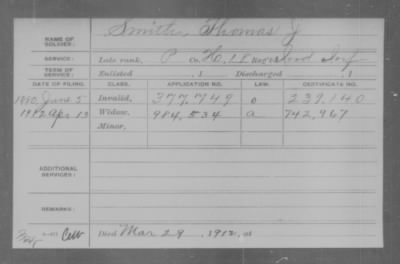 NAME OF SOLDIER: Smith, Thomas J
SERVICE: Late rank, P Co. H, 15 Reg't Ind Inf
TERM OF SERVICE: Enlisted , 1 Discharged , 1
DATE OF FILING. CLASS. APPLICATION NO. LAW. CERTIFICATE NO.
1880, June 5 Invalid, 377,749 239,140
1912 Apr 13 Widow, 984,534 a 742,967
Minor,
ADDITIONAL SERVICES:
REMARKS:
Died Mar 29, 1912, at